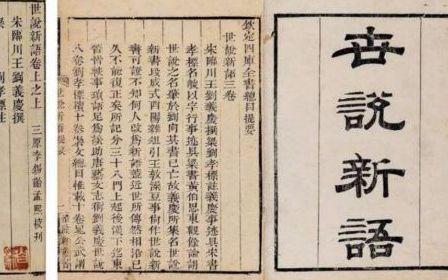 世說新語
欽定四庫全書總目提要
世說新語三卷
宋臨川王劉義慶撰梁劉孝標註義慶事迹具宋書
孝標名峻以字行事迹具梁書黃伯思東觀餘論謂
世說之名肇於劉向其書已亡故義慶所集名世說
新書段成式酉陽雜俎引王敦澡豆事尚作世說新
書可證不知何人改為新語蓋近世所傳然相沿已
久不能復正矣所記分三十八門上起後漢下迄東
晉皆軼事瑣語足為談助唐藝文志稱劉義慶世說
八卷劉孝標續十卷崇文總目惟載十卷晁公武謂
世說新語卷上之上
三原李錫齡孟熙校刊
宋臨川王劉義慶撰
梁 劉孝標注